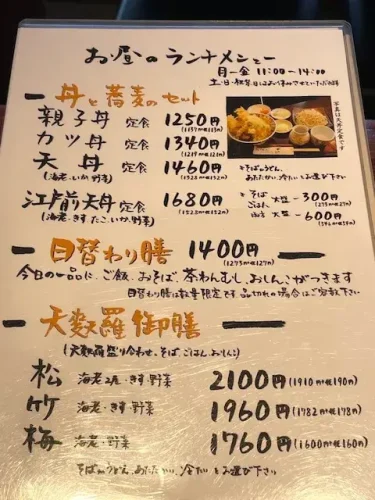 お昼のランチメニュー
月ー金 11:00〜14:00
丼と蕎麦のセット
親子丼 定食 1250円
カツ丼 定食 1340円
天丼 定食 1460円
(海老・いか・野菜)
江戸前天丼 定食 1680円
(海老・きす・たこ・いか・野菜)
写真は天丼定食です
*そばorうどん、
あたたかい、冷たいとお選び下さい
そば 大盛ー300円
ごはん
両方 大盛ー600円
日替わり膳 1400円
(1273円+税127円)
今日の一品に、ご飯、おそば、茶わんむし、おしんこがつきます
日替わり膳は数量限定です。品切れの場合はご容赦下さい
天麩羅御膳
(天麩羅盛り合わせ、そば、ごはん、おしんこ)
松 海老2尾・きす・野菜 2100円(1910円+税190円)
竹 海老・きす・野菜 1960円(1782円+税178円)
梅 海老・野菜 1760円(1600円+税160円)
そばorうどん、あたたかい、冷たいとお選び下さい